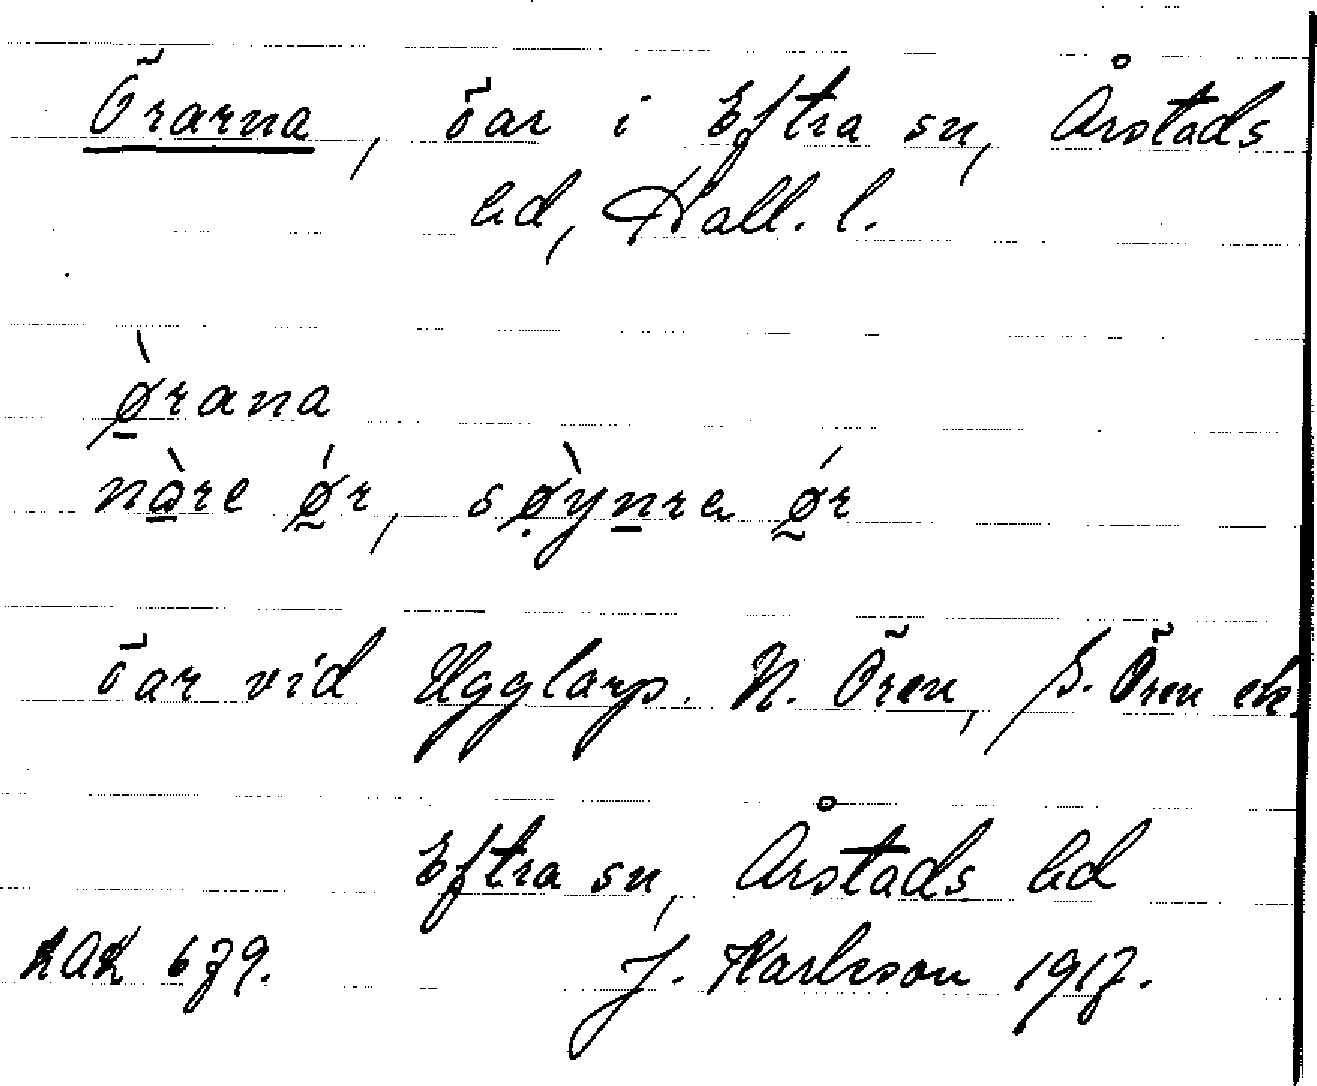 Örarna, öar i Eftra sn, Årstads
hd, Hall. l.
ø̱̀rana
nà̱re ǿ̰r, sø̣̀yṉre ǿ̰r
öar vid Ugglarp. N. Ören, S. Ören ek.
Eftra sn, Årstads hd
RAK 679. J. Karlsson 1917.